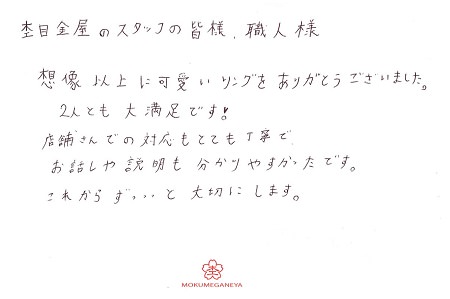 杢目金屋のスタッフの皆様、職人様
想像以上に可愛いリングをありがとうございました。
2人とも大満足です!
店舗さんでの対応もとても丁寧で
お話しや説明も分かりやすかったです。
これからずっ..と大切にします。
MOKUMEGANEYA